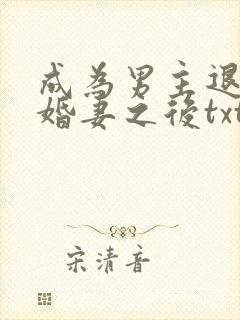 成為男主退
婚妻之後txt
宋清音